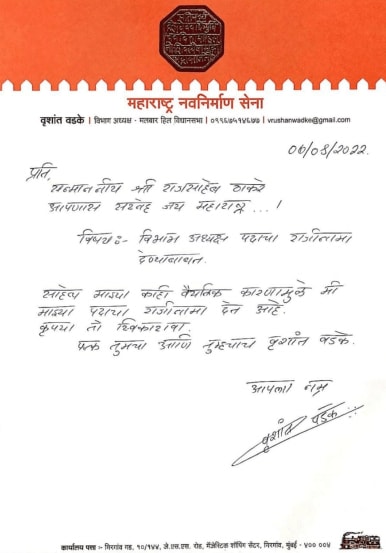 महाराष्ट्र नवनिर्माण सेना
वृशांत वडके | विभाग अध्यक्ष - मलबार हिल विधानसभा | ०९१६७५१४६७७ | vrushanwadke@gmail.com
06/08/2022.
प्रति,
सन्माननीय श्री राजसाहेब ठाकरे
आपणास सस्नेह जय महाराष्ट्र...!
विषय:- विभाग अध्यक्ष पदाचा राजीनामा
देण्याबाबत.
साहेब माझ्या काही वैयक्तिक कारणामुळे मी
माझ्या पदाचा राजीनामा देत आहे.
कृपया तो स्विकारावा.
फक्त तुमचा आणि तुम्हचाच वृशांत वडके.
आपला नम्र
वृशांत वडके
कार्यालय पत्ता :- गिरगांव गड, १०/१४४, जे.एस.एस. रोड, मॅजेस्टिक शॉपिंग सेंटर, गिरगांव, मुंबई - ४०० ००४